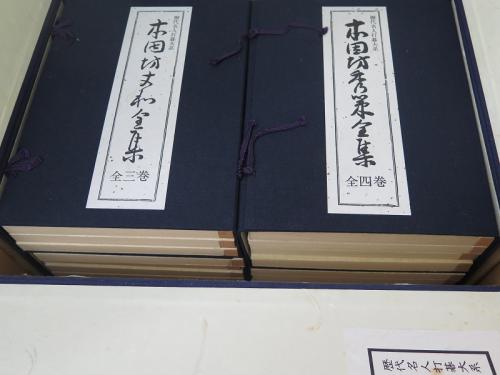 歴代名人打碁大系
本因坊秀策全集
全四巻
歴代名人打碁大系
本因坊丈和全集
全三巻
歴代名人打碁大系